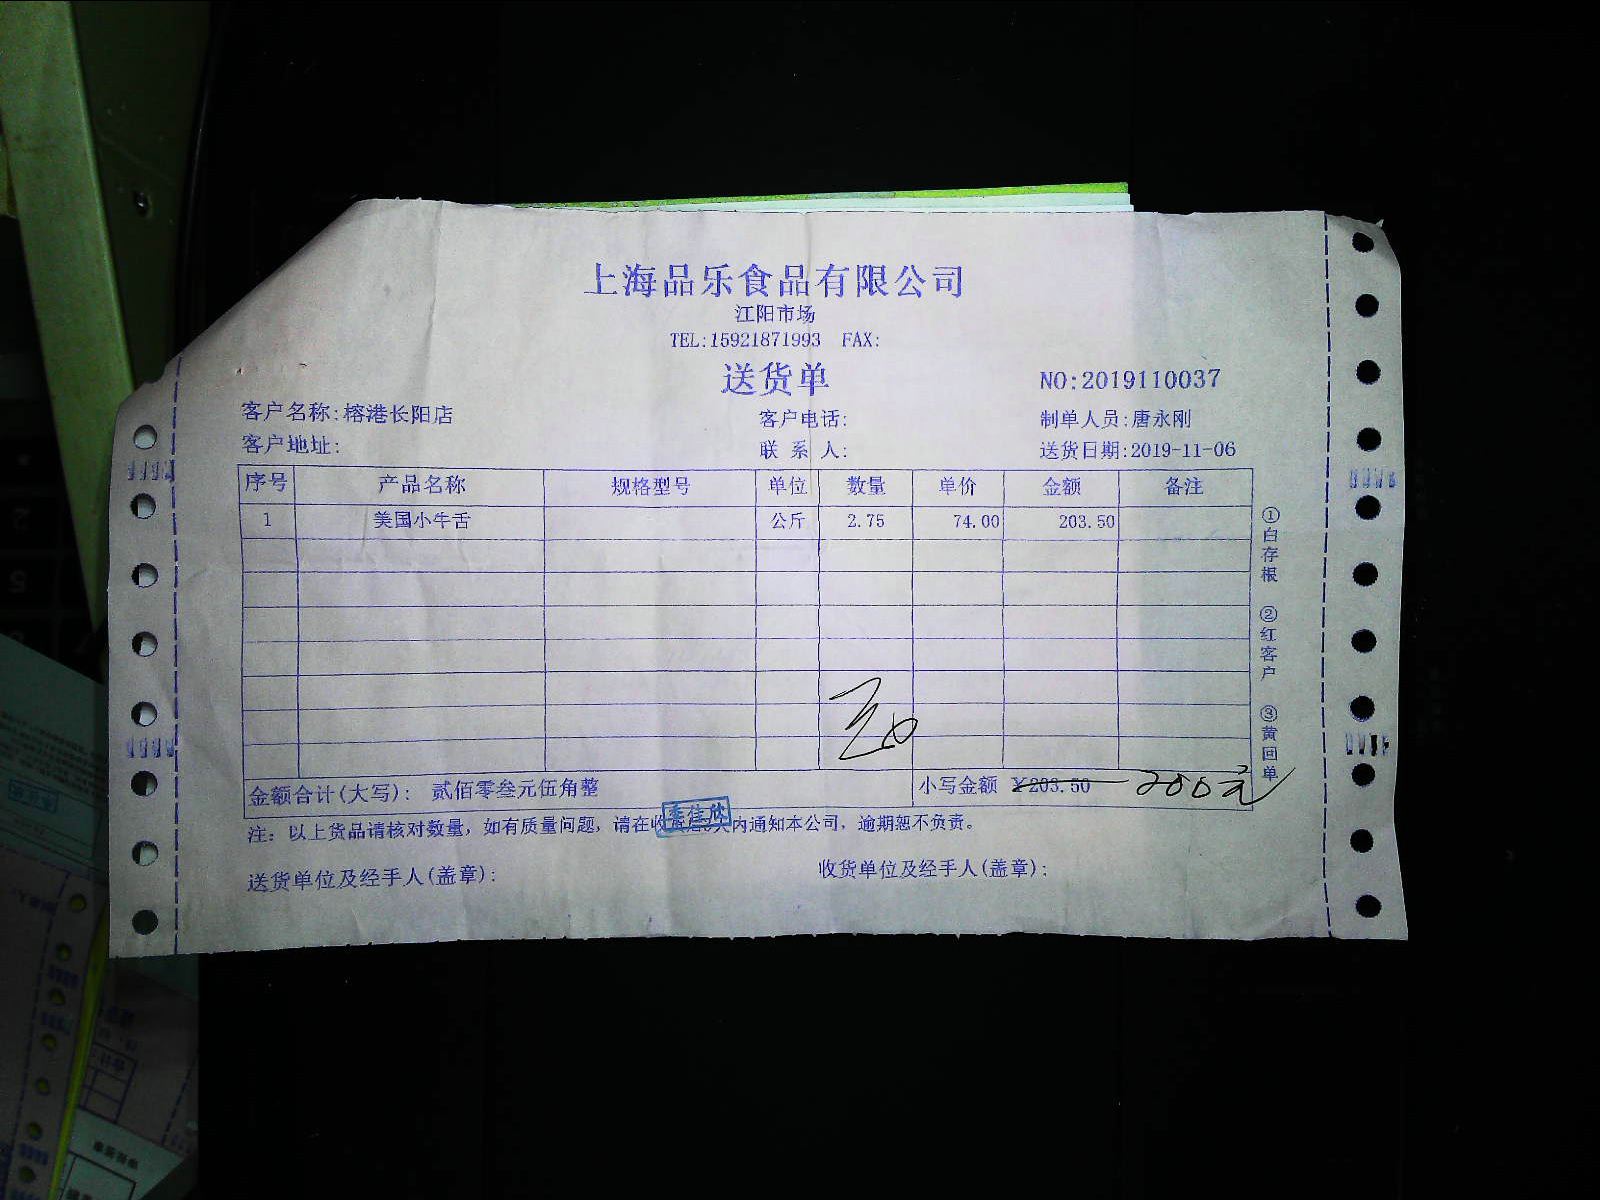 上海品乐食品有限公司
江阳市场
TEL:15921871993 FAX:
送货单
NO:2019110037
客户名称:榕港长阳店 客户电话: 制单人员:唐永刚
客户地址: 联系人: 送货日期:2019-11-06
序号 产品名称 规格型号 单位 数量 单价 金额 备注
1 美国小牛舌 公斤 2.75 74.00 203.50
金额合计(大写): 贰佰零叁元伍角整 小写金额 ¥203.50 200元
注: 以上货品请核对数量, 如有质量问题, 请在收货后3天内通知本公司, 逾期恕不负责。
李佳欣
送货单位及经手人(盖章): 收货单位及经手人(盖章):
①白存根 ②红客户 ③黄回单